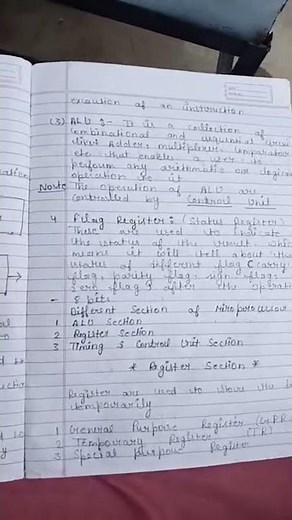 execution of an instruction
(3) ALU :- It is a collection of
combinational and sequential
Adder, multiplexer, comparator
etc. that enable a user to
perform any arithmatic or logical
operation to it
Note The operation of ALU are
controlled by Control Unit
4 Flag Register : (Status Register)
These are used to indicate
the status of the result, which
means it will tell about the
status of different flag (carry
flag, parity flag, sign flag,
zero flag) after the operation
- 8 bits
Different Section of Microprocessor
1 ALU Section
2 Register Section
3 Timing & Control Unit Section
* Register Section *
Register are used to store the
temporarily
1 General Purpose Register (GPR
2 Temporary Register (TR)
3 Special purpose Register